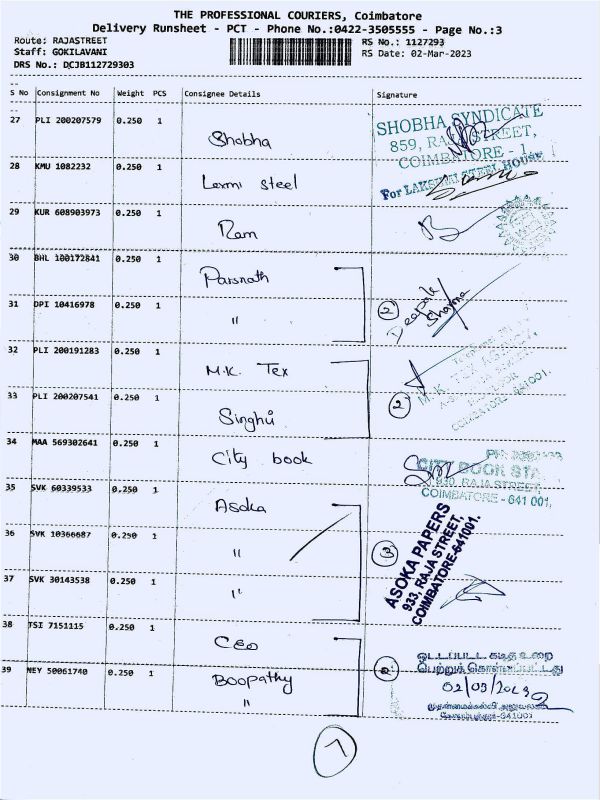 THE PROFESSIONAL COURIERS, Coimbatore
Delivery Runsheet - PCT - Phone No.:0422-3505555 - Page No.:3
Route: RAJASTREET RS No.: 1127293
Staff: GOKILAVANI RS Date: 02-Mar-2023
DRS No.: DCJB112729303
S No Consignment No Weight PCS Consignee Details Signature
27 PLI 200207579 0.250 1 Shobha
SHOBHA SYNDICATE
859, RAJA STREET,
COIMBATORE - 1
28 KMU 1082232 0.250 1 Laxmi steel
For LAKSHMI STEEL HOUSE
29 KUR 608903973 0.250 1 Ram
30 BHL 100172841 0.250 1 Parsnath
31 DPI 10416978 0.250 1 "
2 Deepak Sharma
32 PLI 200191283 0.250 1 M.K. Tex
M. K. TEX AGENCY,
33 PLI 200207541 0.250 1 Singhvi
2
COIMBATORE - 641001.
34 MAA 569302641 0.250 1 City book
CITY BOOK STA
930, RAJA STREET,
COIMBATORE - 641 001.
35 SVK 60339533 0.250 1 Asoka
36 SVK 10366687 0.250 1 "
37 SVK 30143538 0.250 1 "
3
ASOKA PAPERS
933, RAJA STREET,
COIMBATORE-641001.
38 TSI 7151115 0.250 1 CEO
39 NEY 50061740 0.250 1 Boopathy
"
2
ஒட்டப்பட்ட கடித உறை
பெற்றுக் கொள்ளப்பட்டது
02/03/2023
முதன்மைக்கல்வி அலுவலகம்
கோயம்புத்தூர்-641001
7